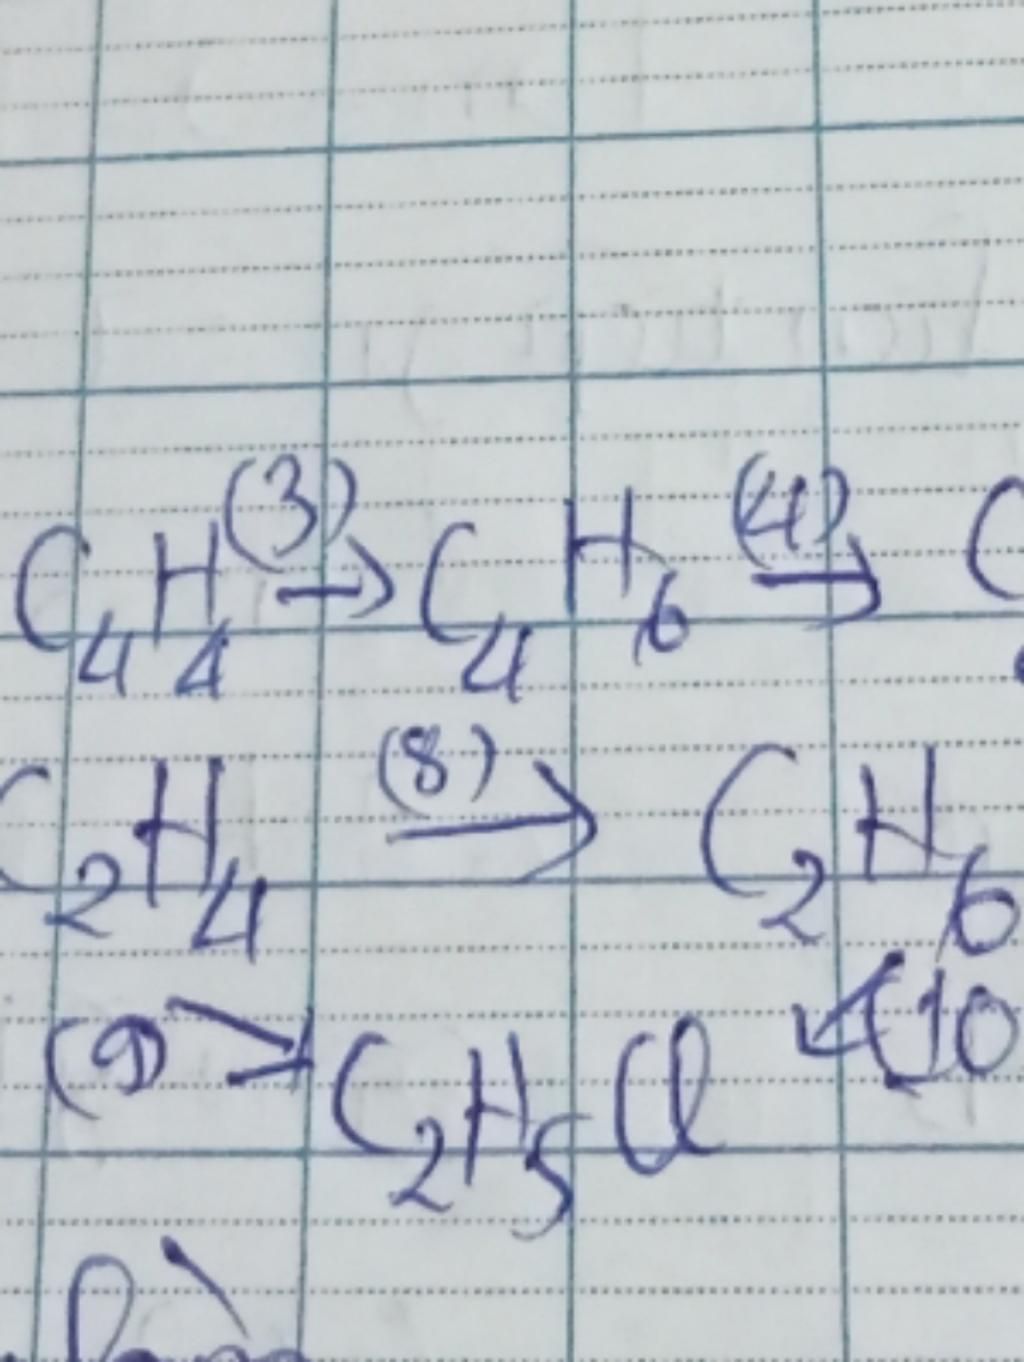 C₄H₄ (3)→ C₄H₆ (4)→ C
C₂H₄ (8)→ C₂H₆
(9) C₂H₅Cl (10